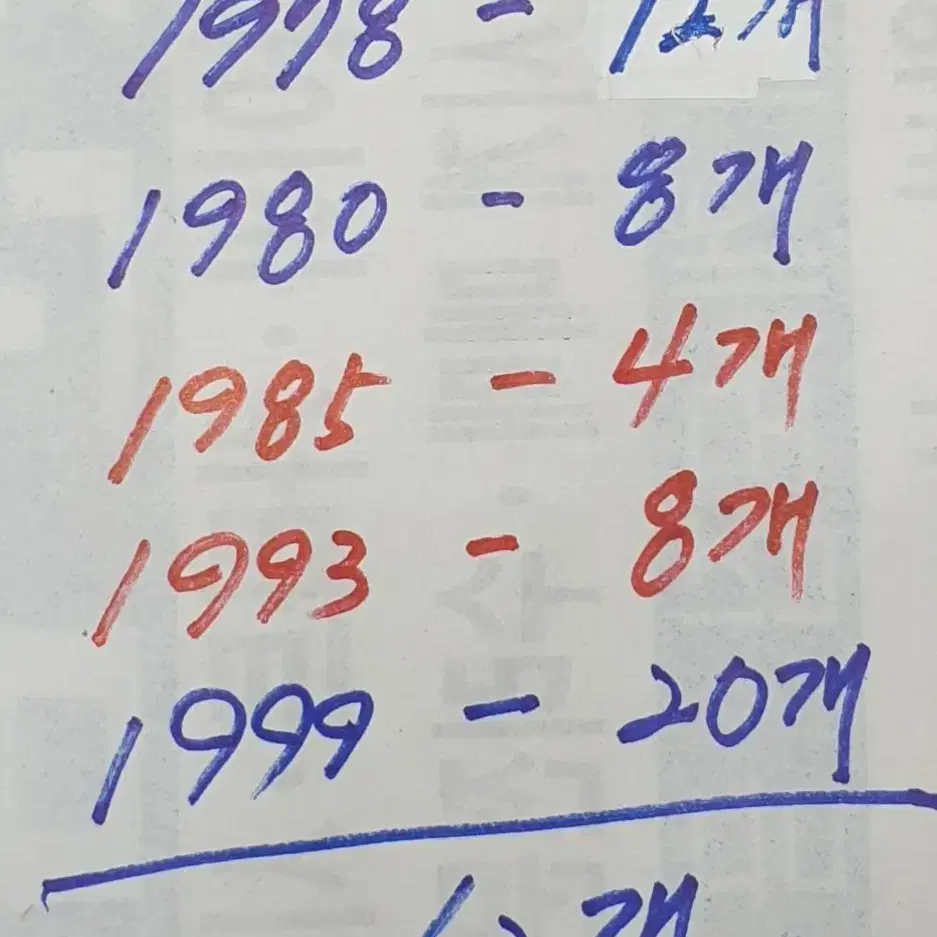 1978 -
1980 - 8개
1985 - 4개
1993 - 8개
1999 - 20개
개